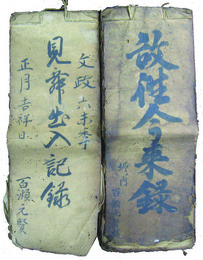 故往今来録
文政六未年
見舞出入記録
正月吉祥日
百瀬元賢